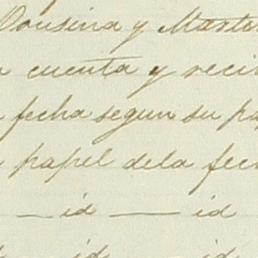 Cousina y Mast
cuenta y reci
fecha segun su pa
papel dela fec
— id — id
id id